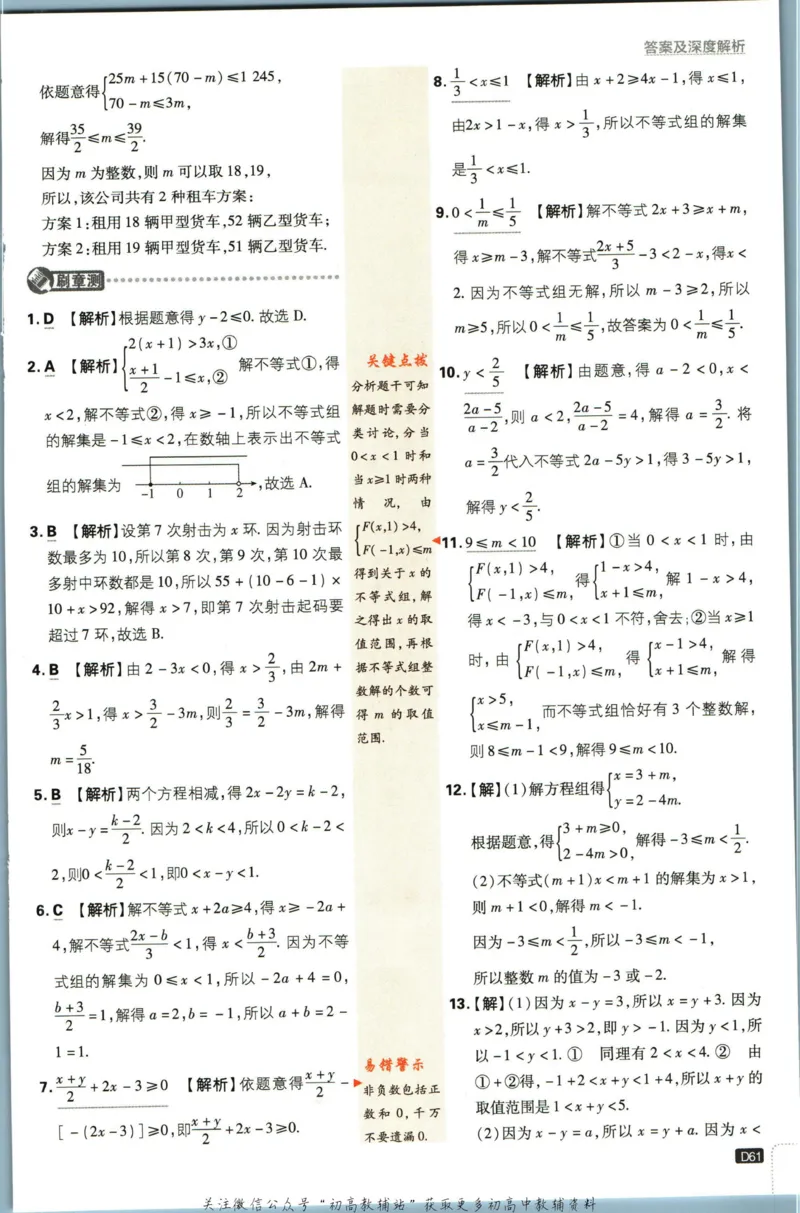 答案及深度解析
依题意得{25m+15(70-m)≤1 245,
70-m≤3m,
解得35/2≤m≤39/2.
因为 m 为整数,则 m 可以取 18,19,
所以,该公司共有 2 种租车方案:
方案 1:租用 18 辆甲型货车,52 辆乙型货车;
方案 2:租用 19 辆甲型货车,51 辆乙型货车.
刷章测
1. D 【解析】根据题意得 y-2≤0. 故选 D.
2. A 【解析】{2(x+1)>3x,①
(x+1)/2-1≤x,② 解不等式①,得
x<2,解不等式②,得 x≥-1,所以不等式组
的解集是-1≤x<2,在数轴上表示出不等式
组的解集为 -1 0 1 2 ,故选 A.
3. B 【解析】设第 7 次射击为 x 环. 因为射击环
数最多为 10,所以第 8 次,第 9 次,第 10 次最
多射中环数都是 10,所以 55+(10-6-1)×
10+x>92,解得 x>7,即第 7 次射击起码要
超过 7 环,故选 B.
4. B 【解析】由 2-3x<0,得 x>2/3,由 2m+
2/3x>1,得 x>3/2-3m,则2/3=3/2-3m,解得
m=5/18.
5. B 【解析】两个方程相减,得 2x-2y=k-2,
则x-y=(k-2)/2. 因为 2<k<4,所以 0<k-2<
2,则0<(k-2)/2<1,即0<x-y<1.
6. C 【解析】解不等式 x+2a≥4,得 x≥-2a+
4,解不等式(2x-b)/3<1,得 x<(b+3)/2. 因为不等
式组的解集为 0≤x<1,所以 -2a+4=0,
(b+3)/2=1,解得 a=2,b=-1,所以 a+b=2-
1=1.
7. (x+y)/2+2x-3≥0 【解析】依题意得(x+y)/2-
[-(2x-3)]≥0,即(x+y)/2+2x-3≥0.
关键点拨
分析题干可知
解题时需要分
类讨论,分当
0<x<1 时和
当 x≥1 时两种
情况,由
{F(x,1)>4,
F(-1,x)≤m
得到关于 x 的
不等式组,解
之得出 x 的取
值范围,再根
据不等式组整
数解的个数可
得 m 的取值
范围.
易错警示
非负数包括正
数和 0,千万
不要遗漏 0.
8. 1/3<x≤1 【解析】由 x+2≥4x-1,得 x≤1,
由2x>1-x,得 x>1/3,所以不等式组的解集
是1/3<x≤1.
9. 0<1/m≤1/5 【解析】解不等式 2x+3≥x+m,
得 x≥m-3,解不等式(2x+5)/3-3<2-x,得x<
2. 因为不等式组无解,所以 m-3≥2,所以
m≥5,所以 0<1/m≤1/5,故答案为 0<1/m≤1/5.
10. y<2/5 【解析】由题意,得 a-2<0,x<
(2a-5)/(a-2),则 a<2,(2a-5)/(a-2)=4,解得 a=3/2. 将
a=3/2代入不等式 2a-5y>1,得 3-5y>1,
解得 y<2/5.
11. 9≤m<10 【解析】①当 0<x<1 时,由
{F(x,1)>4,
F(-1,x)≤m, 得{1-x>4,
x+1≤m, 解 1-x>4,
得 x<-3,与 0<x<1 不符,舍去;②当 x≥1
时,由{F(x,1)>4,
F(-1,x)≤m, 得{x-1>4,
x+1≤m, 解得
{x>5,
x≤m-1, 而不等式组恰好有 3 个整数解,
则 8≤m-1<9,解得 9≤m<10.
12.【解】(1)解方程组得{x=3+m,
y=2-4m.
根据题意,得{3+m≥0,
2-4m>0, 解得-3≤m<1/2.
(2)不等式(m+1)x<m+1 的解集为 x>1,
则 m+1<0,解得 m<-1.
因为-3≤m<1/2,所以-3≤m<-1,
所以整数 m 的值为-3 或-2.
13.【解】(1)因为 x-y=3,所以 x=y+3. 因为
x>2,所以 y+3>2,即 y>-1. 因为 y<1,所
以-1<y<1. ① 同理有 2<x<4. ② 由
①+②得,-1+2<x+y<1+4,所以 x+y 的
取值范围是 1<x+y<5.
(2)因为 x-y=a,所以 x=y+a. 因为 x<
D61
关注微信公众号"初高教辅站"获取更多初高中教辅资料